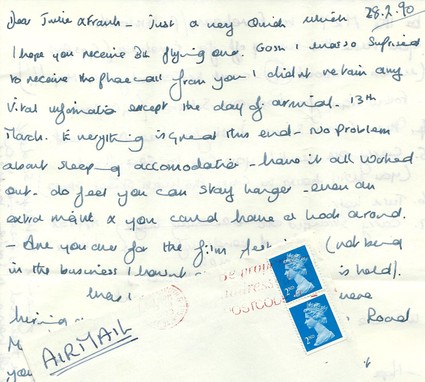 28.2.90
Dear Julie & Frank - just a very quick which
I hope you receive B4 flying out. Gosh I was so suprised
to receive the phone call from you I didnt retain any
vital information except the day of arrival - 13th
March. Everything is great this end - No problem
about sleeping accomodation - have it all worked
out - do feel you can stay longer - even an
extra night & you could have a look around.
- Are you over for the film (not being
in the business I havnt is held).
Road
AIRMAIL
POSTCODE
2ND
2ND
you